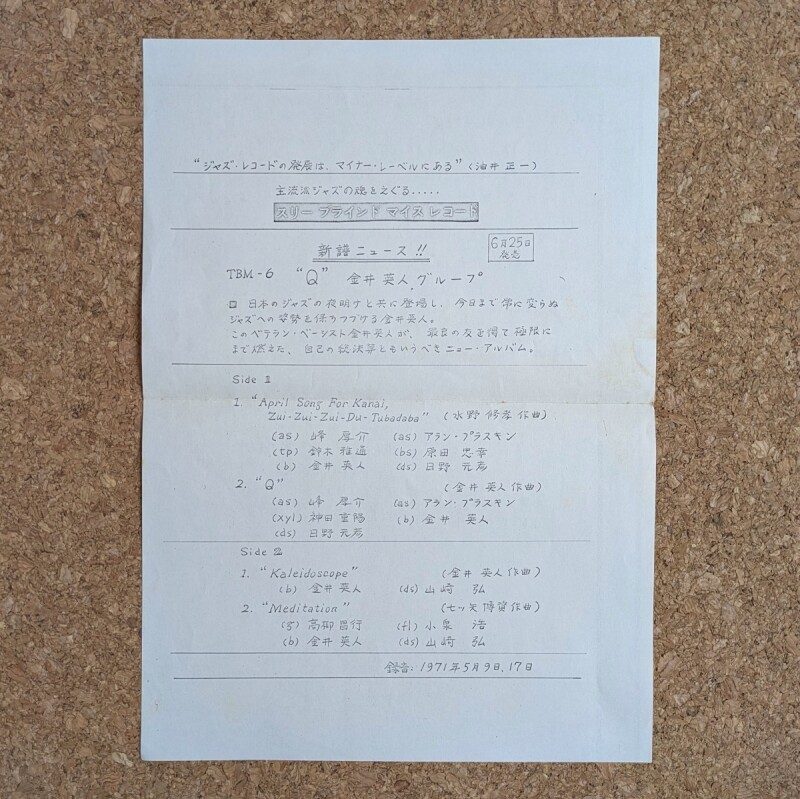 "ジャズ・レコードの発展は、マイナー・レーベルにある"(油井 正一)
主流派ジャズの魂をえぐる.....
スリー ブラインド マイス レコード
新譜ニュース!!
6月25日
発売
TBM-6 "Q" 金井 英人.グループ
日本のジャズの夜明けと共に登場し、今日まで常に変らぬ
ジャズへの姿勢を保ちつづける金井英人。
このベテラン・ベーシスト金井英人が、最良の友を得て極限に
まで燃えた、自己の総決算ともいうべきニュー・アルバム。
Side I
1. "April Song For Kanai,
Zui-Zui-Zui-Du-Tubadaba" (水野 修孝 作曲)
(as) 峰 厚介 (as) アラン・プラスキン
(tp) 鈴木 雅道 (bs) 原田 忠幸
(b) 金井 英人 (ds) 日野 元彦
2. "Q" (金井 英人 作曲)
(as) 峰 厚介 (as) アラン・プラスキン
(xyl) 神田 重陽 (b) 金井 英人
(ds) 日野 元彦
Side II
1. "Kaleidoscope" (金井 英人 作曲)
(b) 金井 英人 (ds) 山崎 弘
2. "Meditation" (七ッ矢 博資 作曲)
(g) 高柳 昌行 (fl) 小泉 浩
(b) 金井 英人 (ds) 山崎 弘
録音: 1971年5月9日、17日